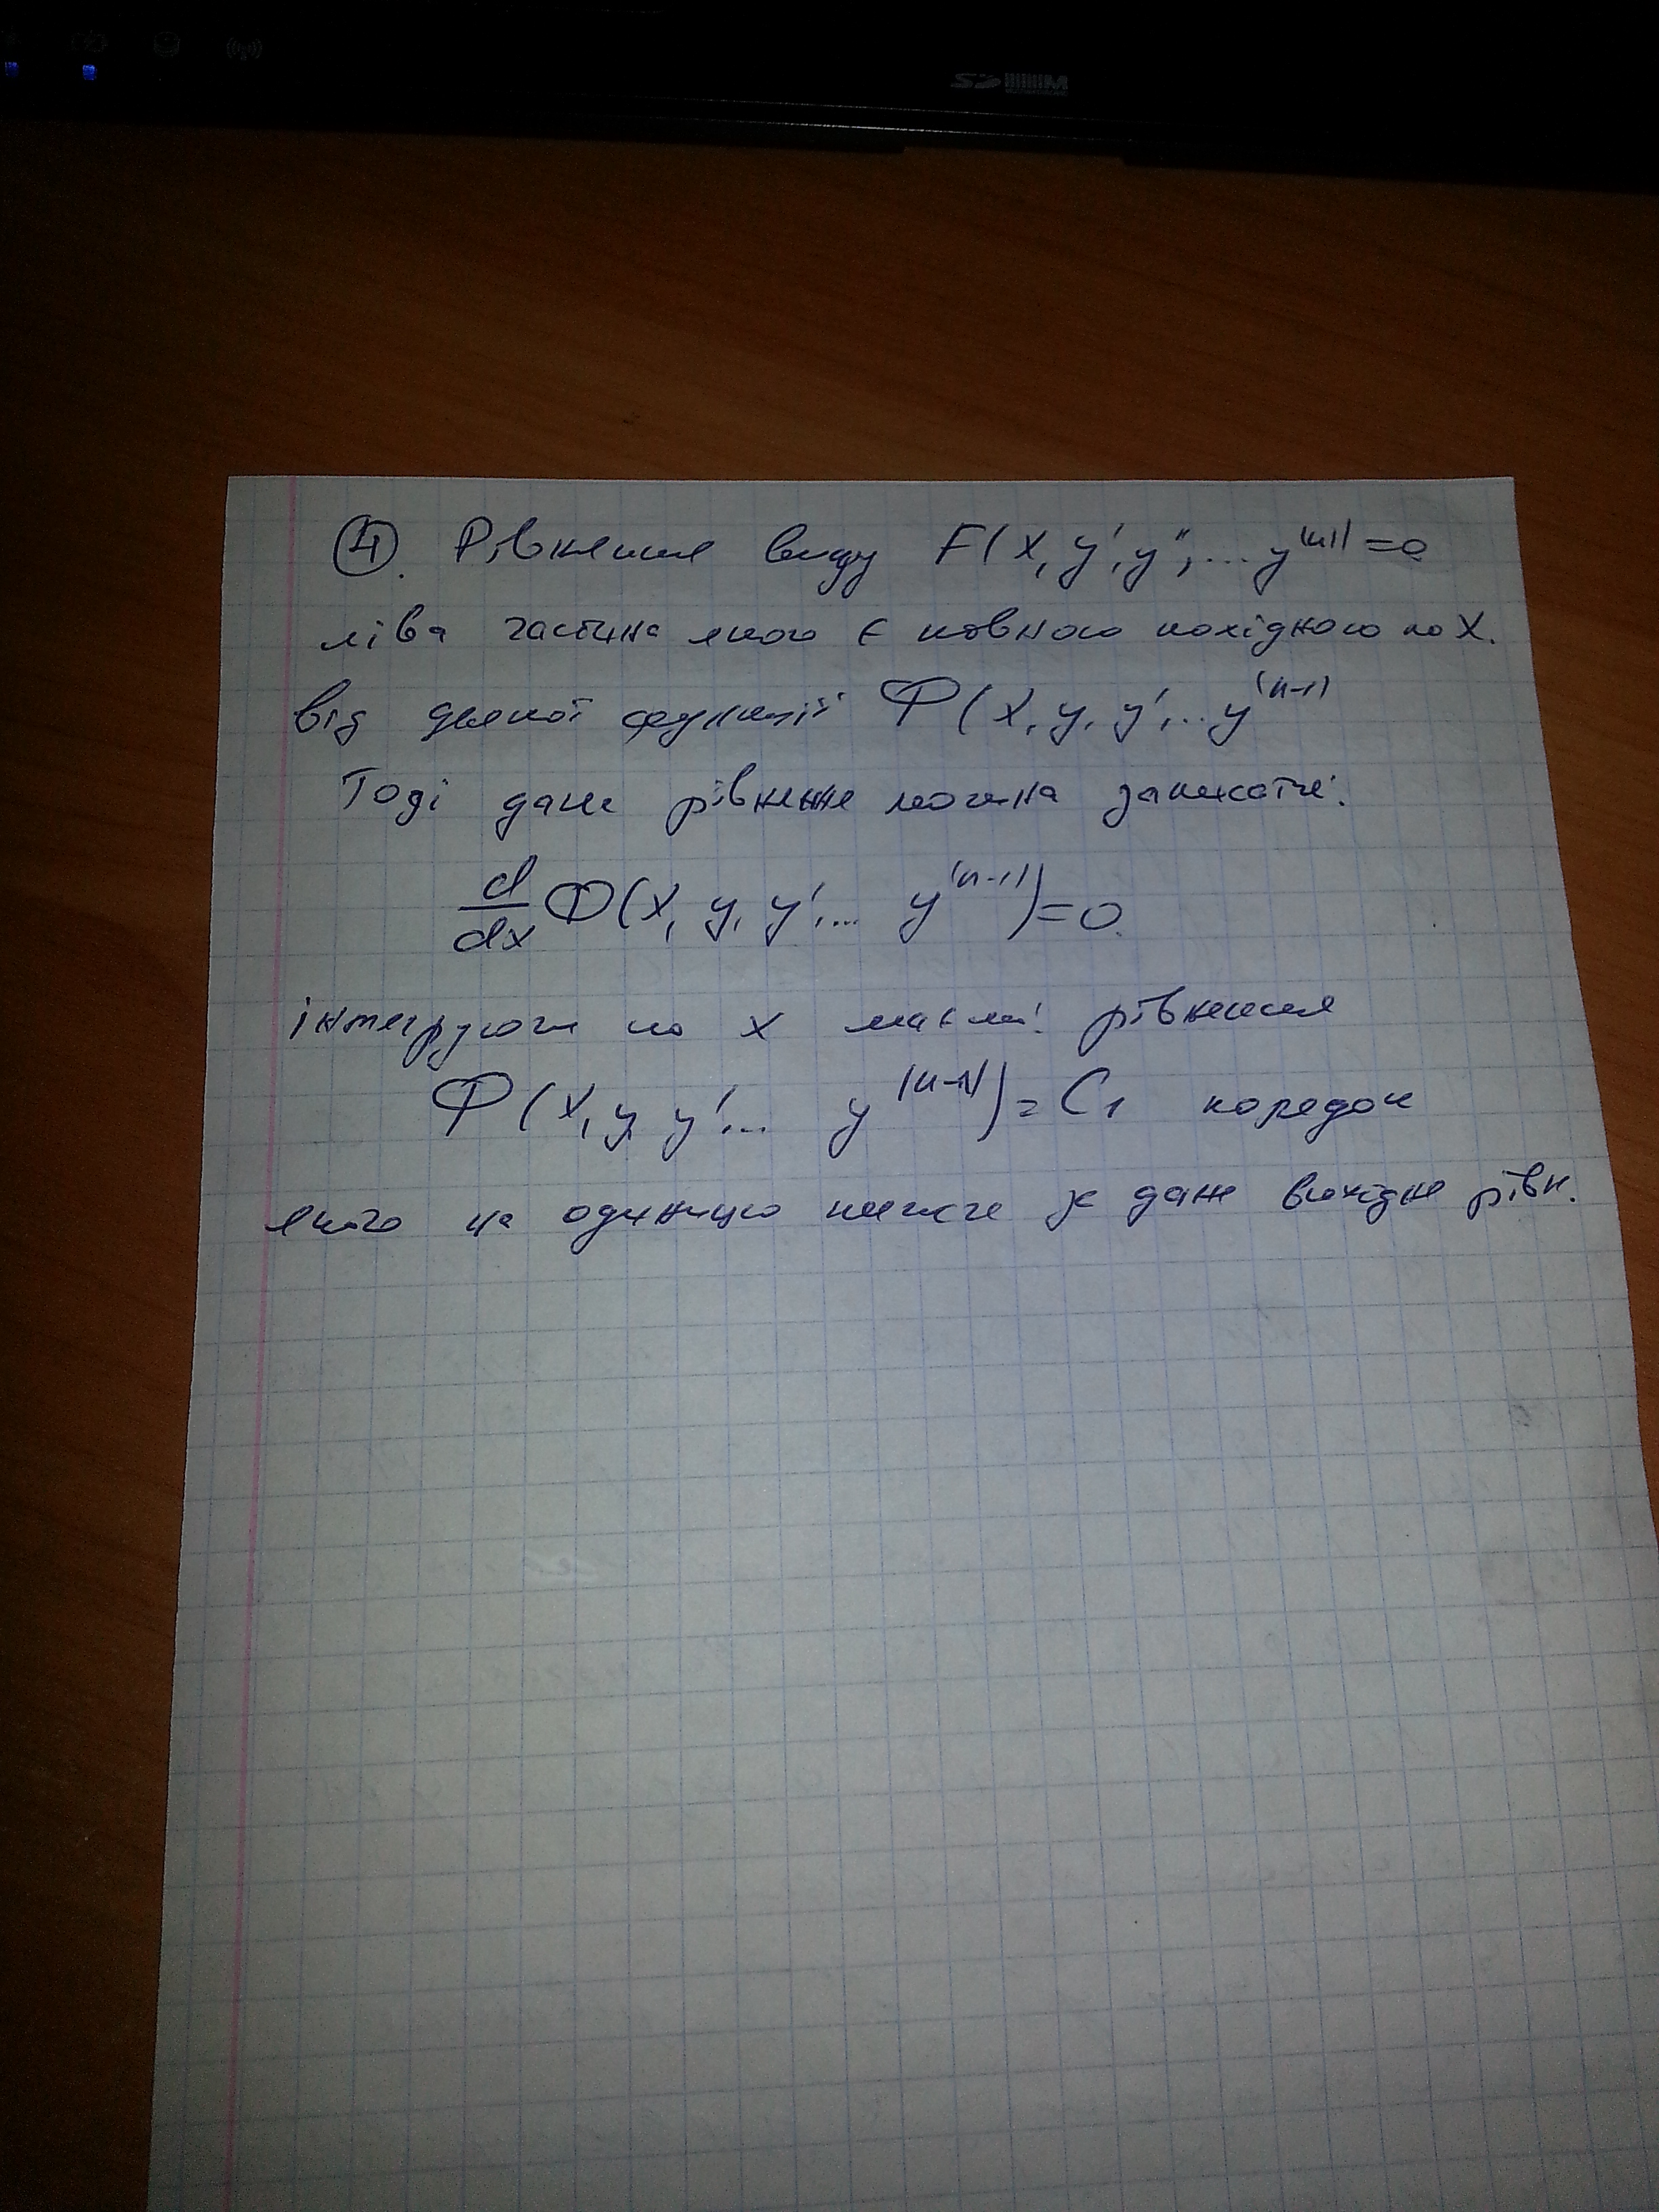 ④. Рівняння виду F(x, y', y'', ... y⁽ⁿ⁾) = 0
ліва частина якого є повною похідною по x.
від деякої функції Ф(x, y, y', ... y⁽ⁿ⁻¹⁾
Тоді дане рівняння можна записати:
d/dx Ф(x, y, y', ... y⁽ⁿ⁻¹⁾) = 0.
інтегруючи по x маємо рівняння
Ф(x, y, y' ... y⁽ⁿ⁻¹⁾) = C₁ порядок
якого на одиницю нижче за дане вихідне рівн.